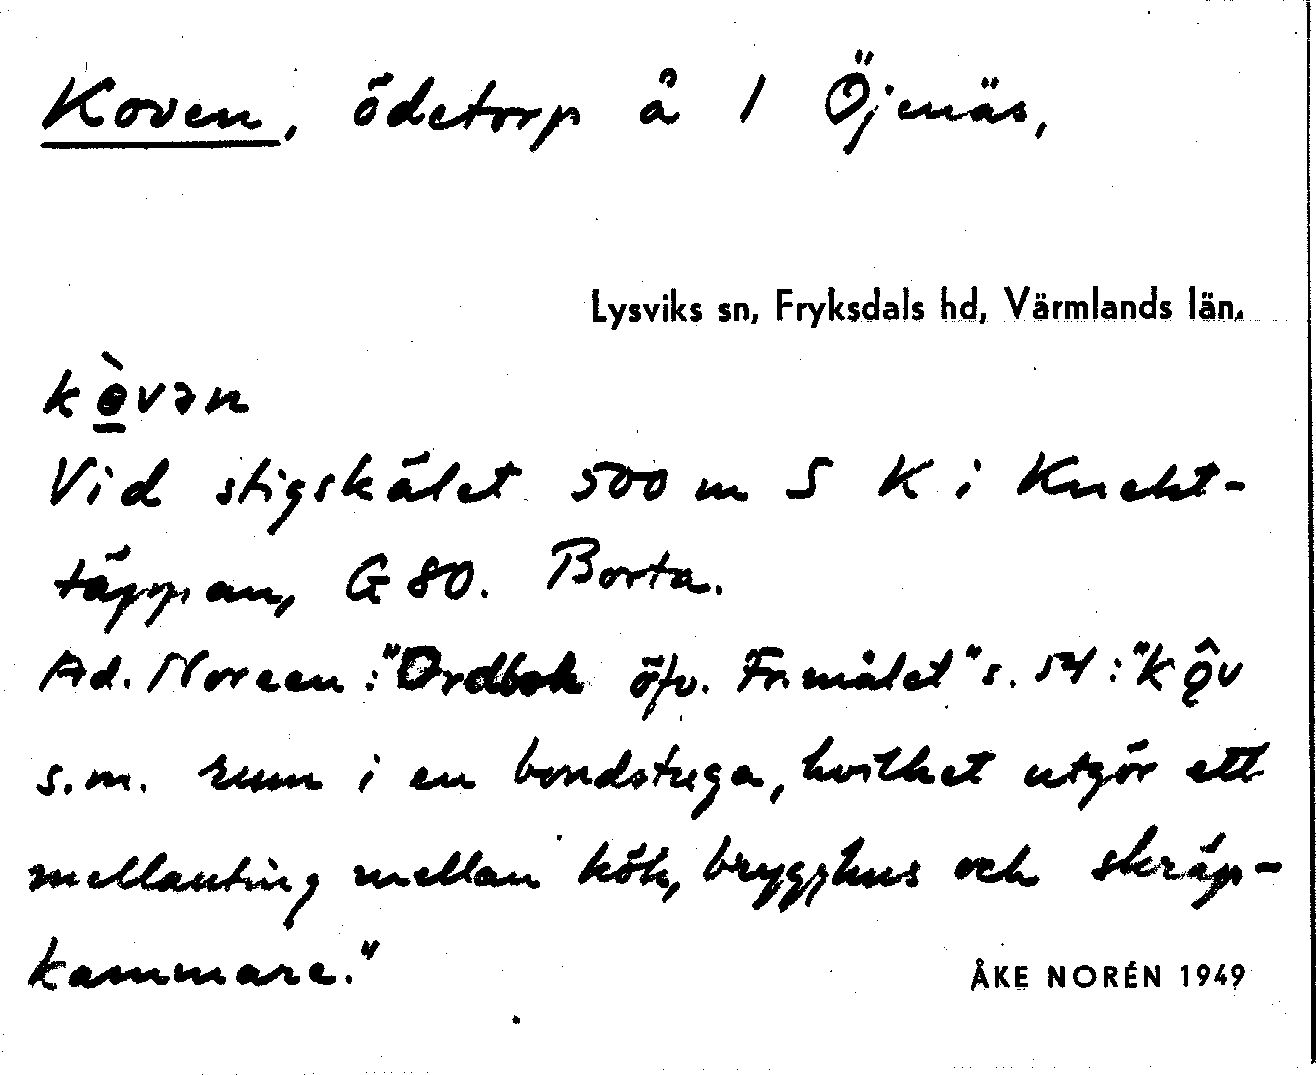 Koven, ödetorp å 1 Öjenäs,
Lysviks sn, Fryksdals hd, Värmlands län.
kö̀vən
Vid stigskälet 500 m S K i Knekt-
täppan, G 80. Borta.
Ad. Noreen: "Ordbok öfv. Frmålet" s. 54: "kǫ̂v
s.m. rum i en bondstuga, hvilket utgör ett
mellanting mellan kök, brygghus och skräp-
kammare."
ÅKE NORÉN 1949